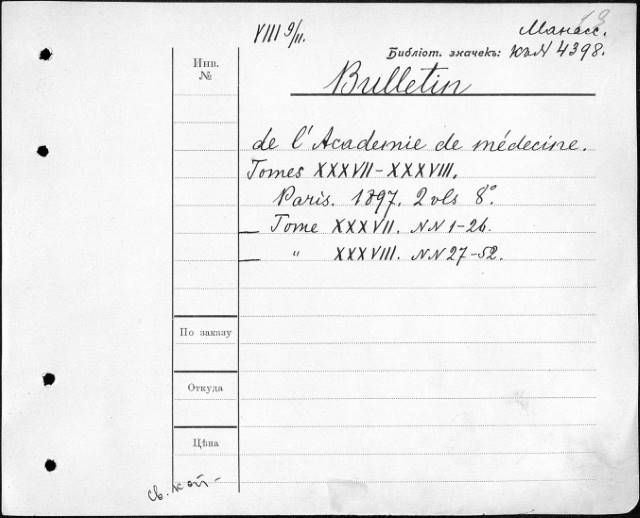 VIII 9/II. Манасс.
Библіот. значекъ: къ N 4398.
Инв.
№
Bulletin
de l'Academie de médecine.
Tomes XXXVII-XXXVIII.
Paris. 1897. 2 vls 8°
— Tome XXXVII. NN 1-26.
— " XXXVIII. NN 27-52.
По заказу
Откуда
Цѣна